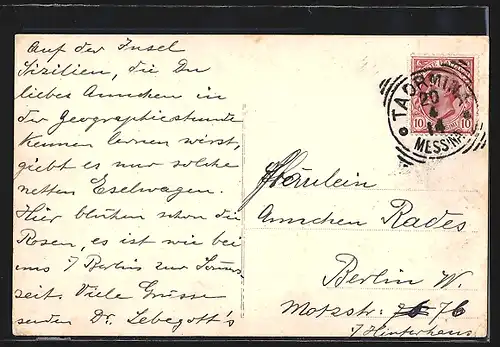 Auf der Insel
Sizilien, die Du
liebes Annchen in
der Geographiestunde
kennen lernen wirst,
giebt es nur solche
netten Eselwagen.
Hier blühen schon die
Rosen, es ist wie bei
uns i/ Berlin zur Somm
zeit. Viele Grüsse
senden Dr. Lebegott's
TAORMINA
20 4 14
MESSINA
10 10
Fräulein
Annchen Rades
Berlin W.
Motzstr: 76
i/ Hinterhaus